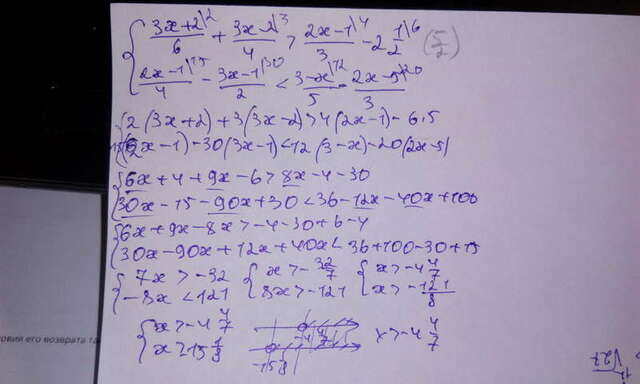 { (3x+2)/6 \2 + (3x-2)/4 \3 > (2x-1)/3 \4 - 2 1/2 \6 (5/2)
(2x-1)/4 \15 - (3x-1)/2 \30 < (3-x)/5 \12 - (2x-5)/3 \20
{ 2(3x+2)+3(3x-2)>4(2x-1)-6·5
15(2x-1)-30(3x-1)<12(3-x)-20(2x-5)
{ 6x+4+9x-6>8x-4-30
30x-15-90x+30<36-12x-40x+100
{ 6x+9x-8x>-4-30+6-4
30x-90x+12x+40x<36+100-30+15
{ 7x>-32 { x>-32/7 { x>-4 4/7
-8x<121 8x>-121 x>-121/8
{ x>-4 4/7 -4 4/7 x>-4 4/7
x>15 1/8
-15 1/8
√27
овия его возврата та